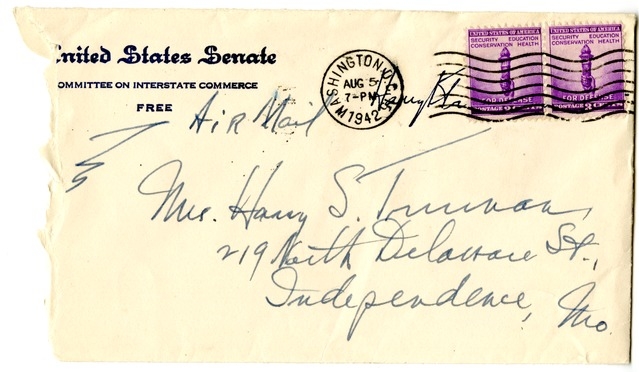 United States Senate
COMMITTEE ON INTERSTATE COMMERCE
FREE
WASHINGTON, D.C.
AUG 5
7-PM
1942
Harry
UNITED STATES OF AMERICA
SECURITY EDUCATION
CONSERVATION HEALTH
FOR DEFENSE
POSTAGE 3 CENTS
UNITED STATES OF AMERICA
SECURITY EDUCATION
CONSERVATION HEALTH
FOR DEFENSE
POSTAGE 3 CENTS
Air Mail
Mrs. Harry S. Truman,
219 North Delaware St.,
Independence, Mo.